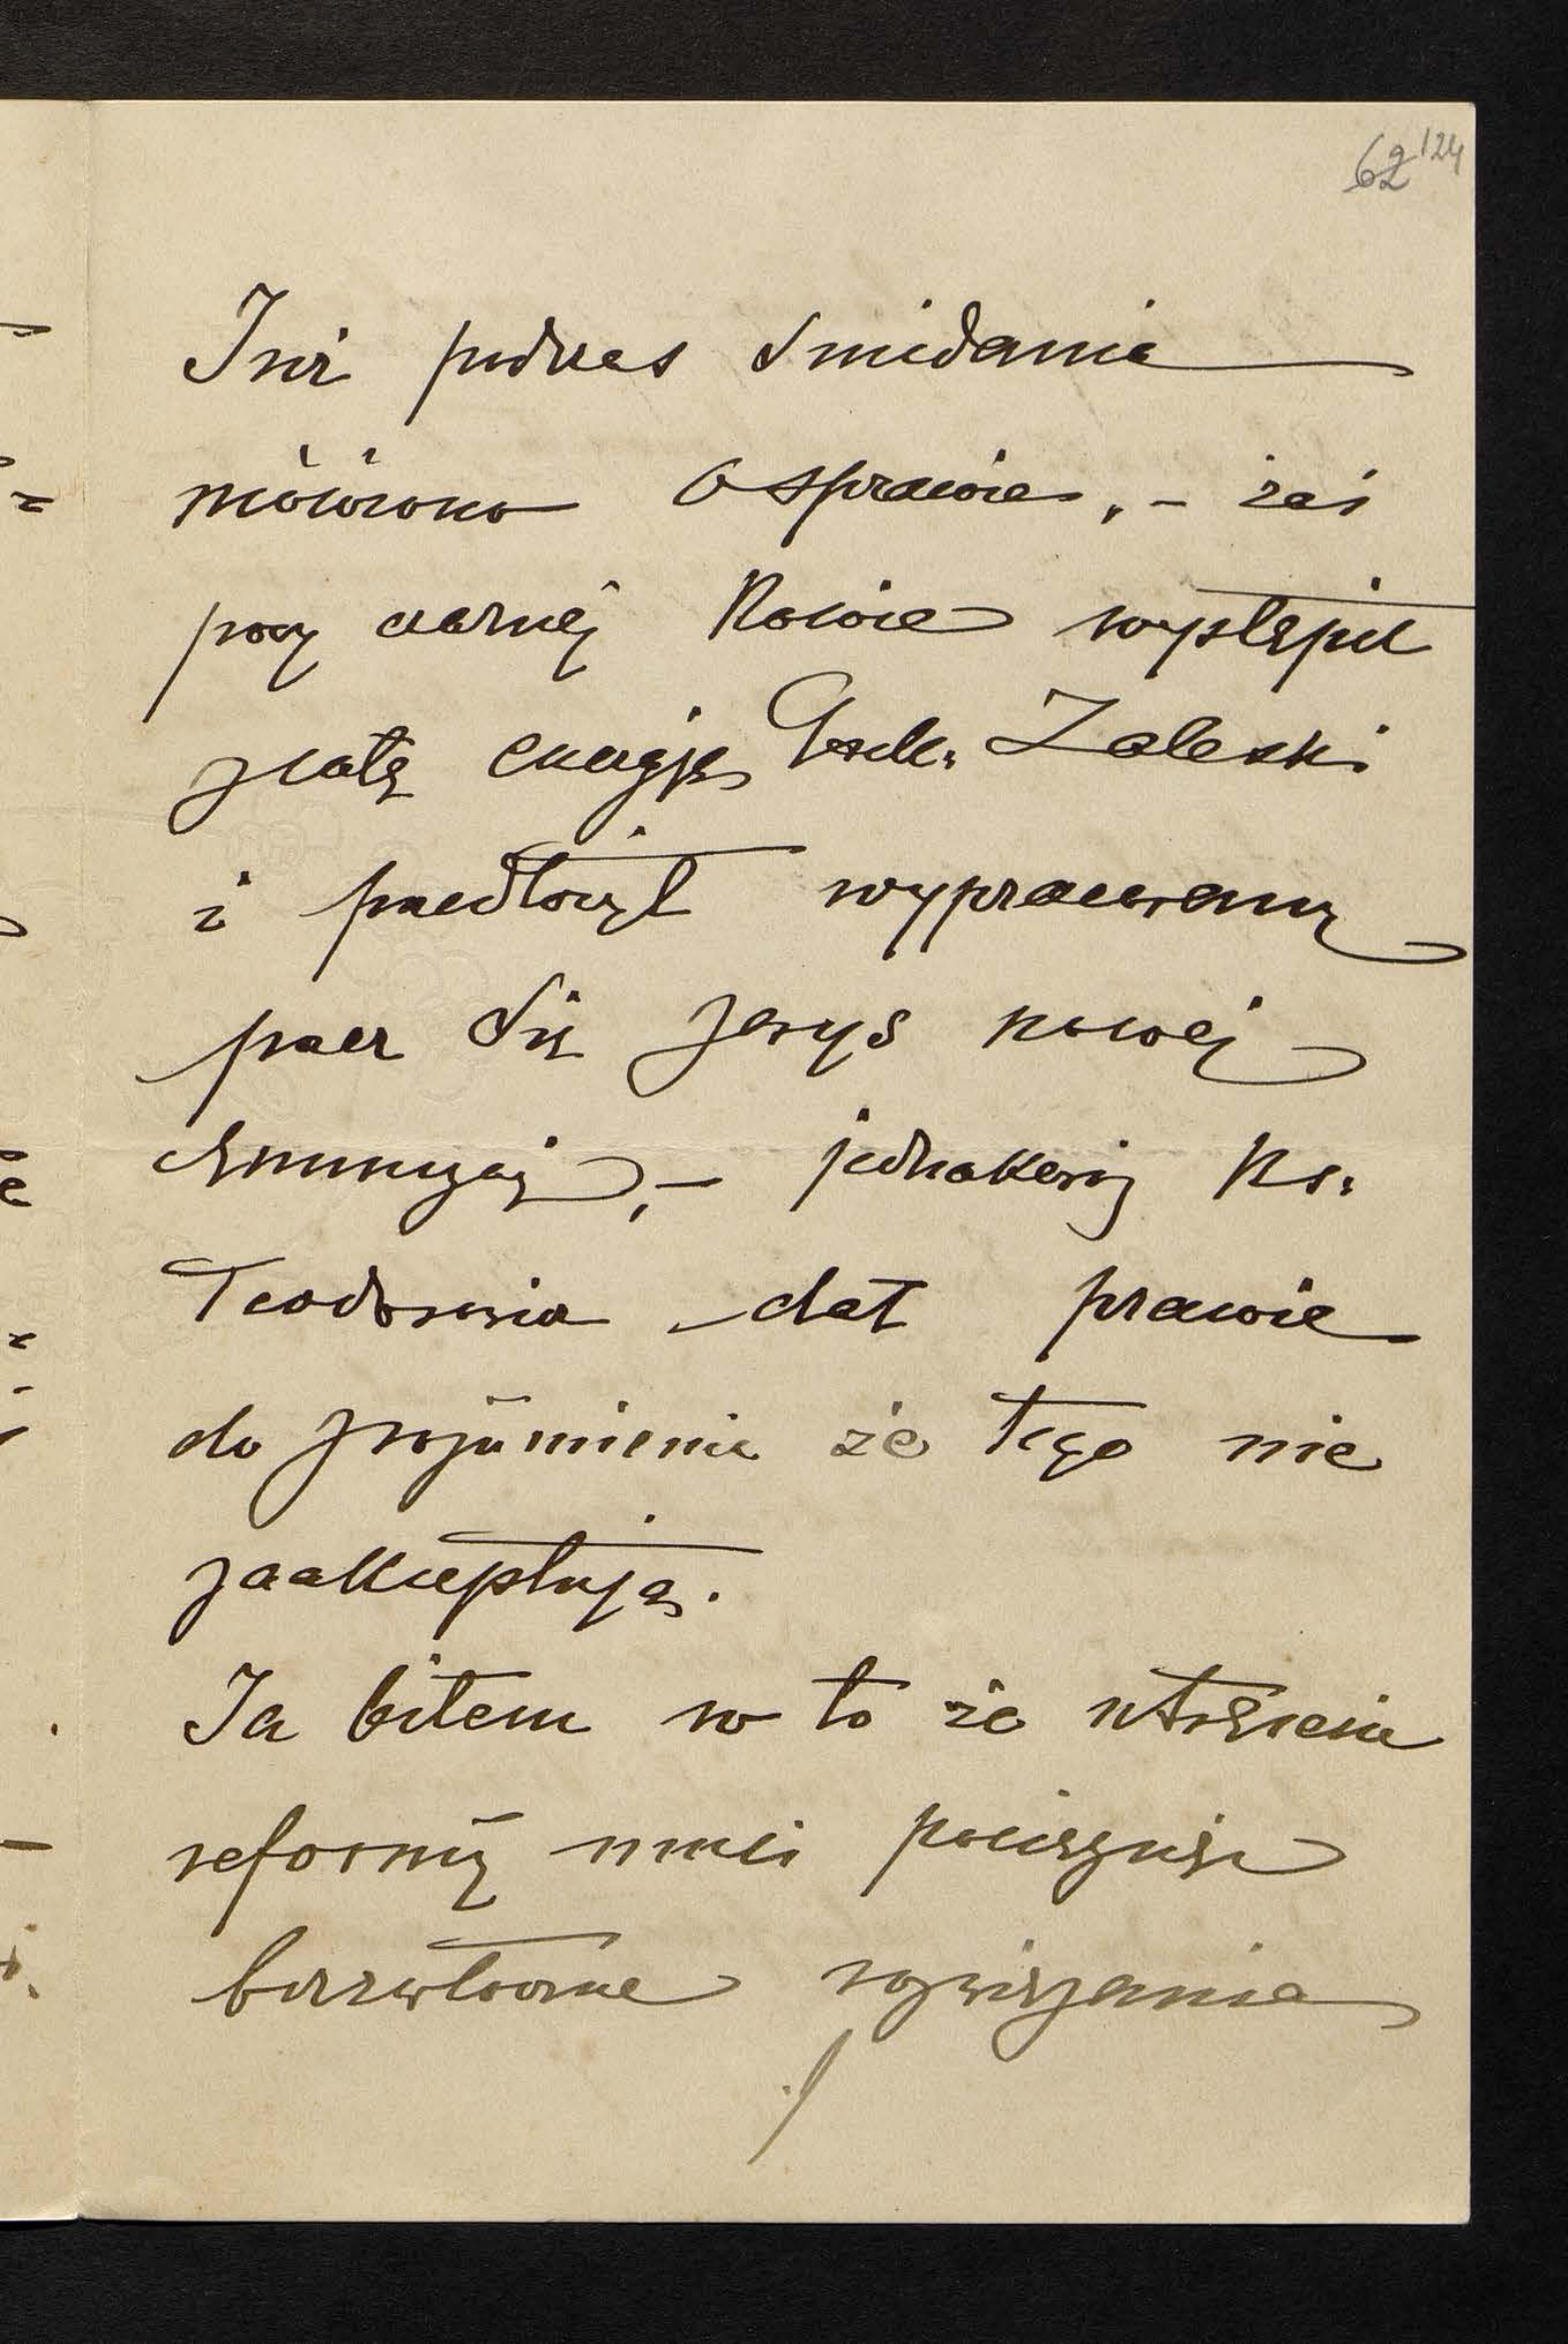 62 124
Już podczas śniadania
mówiono o sprawie, – zaś
przy czarnej kawie wystąpił
z całą energją Gosk. Zaleski
i przedłożył wypracowany
przez się zarys nowej
ordynacyi, – jednakowoż Ks.
Teodorowicz dał prawie
do zrozumienia że tego nie
zaakceptują.
Ja biłem w to że utrącenie
reformy musi pociągnąć
bezzwłoczne rozwiązanie
./